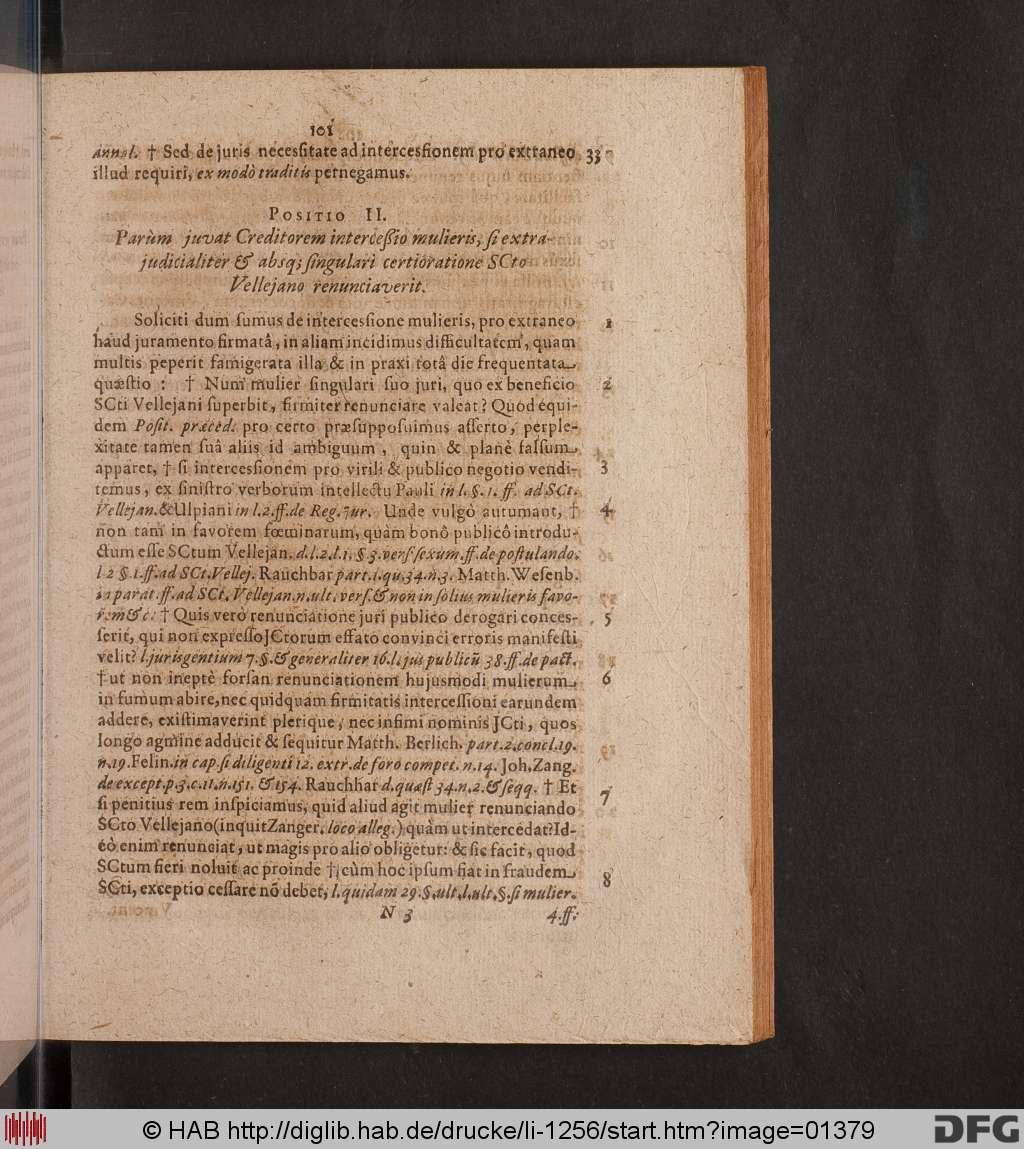 101
annal. † Sed de juris necesſitate ad intercesſionem pro extraneo 33
illud requiri, ex modò traditis pernegamus.
POSITIO II.
Parùm juvat Creditorem interceßio mulieris, ſi extra-
judicialiter & absq; ſingulari certioratione SCto
Vellejano renunciaverit.
Soliciti dum ſumus de intercesſione mulieris, pro extraneo 1
haud juramento firmatâ, in aliam incidimus difficultatem, quam
multis peperit famigerata illa & in praxi totâ die frequentata
quæſtio : † Num mulier ſingulari ſuo juri, quo ex beneficio 2
SCti Vellejani ſuperbit, firmiter renunciare valeat? Quod equi-
dem Poſit. præced. pro certo præſuppoſuimus aſſerto, perple-
xitate tamen ſuâ aliis id ambiguum, quin & planè falſum
apparet, † ſi intercesſionem pro virili & publico negotio vendi- 3
temus, ex ſiniſtro verborum intellectu Pauli in l. §. 1. ff. ad SCt.
Vellejan. & Ulpiani in l. 2. ff. de Reg. Jur. Unde vulgò autumant, † 4
non tam in favorem fœminarum, quàm bonô publicô introdu-
ctum eſſe SCtum Vellejan. d. l. 2. l. 1. § 3. verſ. ſexum. ff. de poſtulando.
l 2 §. 1. ff. ad SCt. Vellej. Rauchbar part. 1. qu. 34. n. 3. Matth. Weſenb.
in parat. ff. ad SCt. Vellejan. n. ult. verſ. & non in ſolius mulieris favo-
rem &c. † Quis verò renunciatione juri publico derogari conces- 5
ſerit, qui non expreſſo JCtorum effato convinci erroris manifeſti
velit? l. jurisgentium 7. §. & generaliter 16. l. jus publicū 38. ff. de pact.
† ut non ineptè forſan renunciationem hujusmodi mulierum 6
in fumum abire, nec quidquam firmitatis intercesſioni earundem
addere, exiſtimaverint plerique, nec infimi nominis JCti, quos
longo agmine adducit & ſequitur Matth. Berlich. part. 2. concl. 19.
n. 19. Felin. in cap. ſi diligenti 12. extr. de foro compet. n. 14. Joh. Zang.
de except. p. 3. c. 11. n. 151. & 154. Rauchbar d. quæſt 34. n. 2. & ſeqq. † Et 7
ſi penitius rem inſpiciamus, quid aliud agit mulier renunciando
SCto Vellejano (inquit Zanger. loco alleg.) quàm ut intercedat? Id-
eò enim renunciat, ut magis pro alio obligetur: & ſic facit, quod
SCtum fieri noluit ac proinde †, cùm hoc ipſum fiat in fraudem 8
SCti, exceptio ceſſare nō debet, l. quidam 29. §. ult. l. ult. §. ſi mulier.
N 3 4. ff.
© HAB http://diglib.hab.de/drucke/li-1256/start.htm?image=01379
DFG